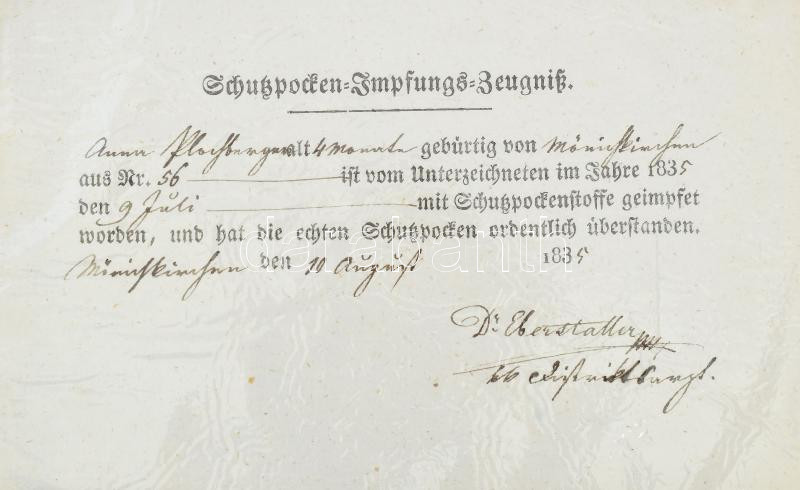 Schutzpocken-Impfungs-Zeugniß.
Anna Plochberger alt 4 Monate gebürtig von Mönichkirchen
aus Nr. 56 ist vom Unterzeichneten im Jahre 1835
den 9 Juli mit Schutzpockenstoffe geimpfet
worden, und hat die echten Schutzpocken ordentlich überstanden.
Mönichkirchen den 10 August 1835
darabanth
Dr Eberstaller
kk Distriktsarzt.